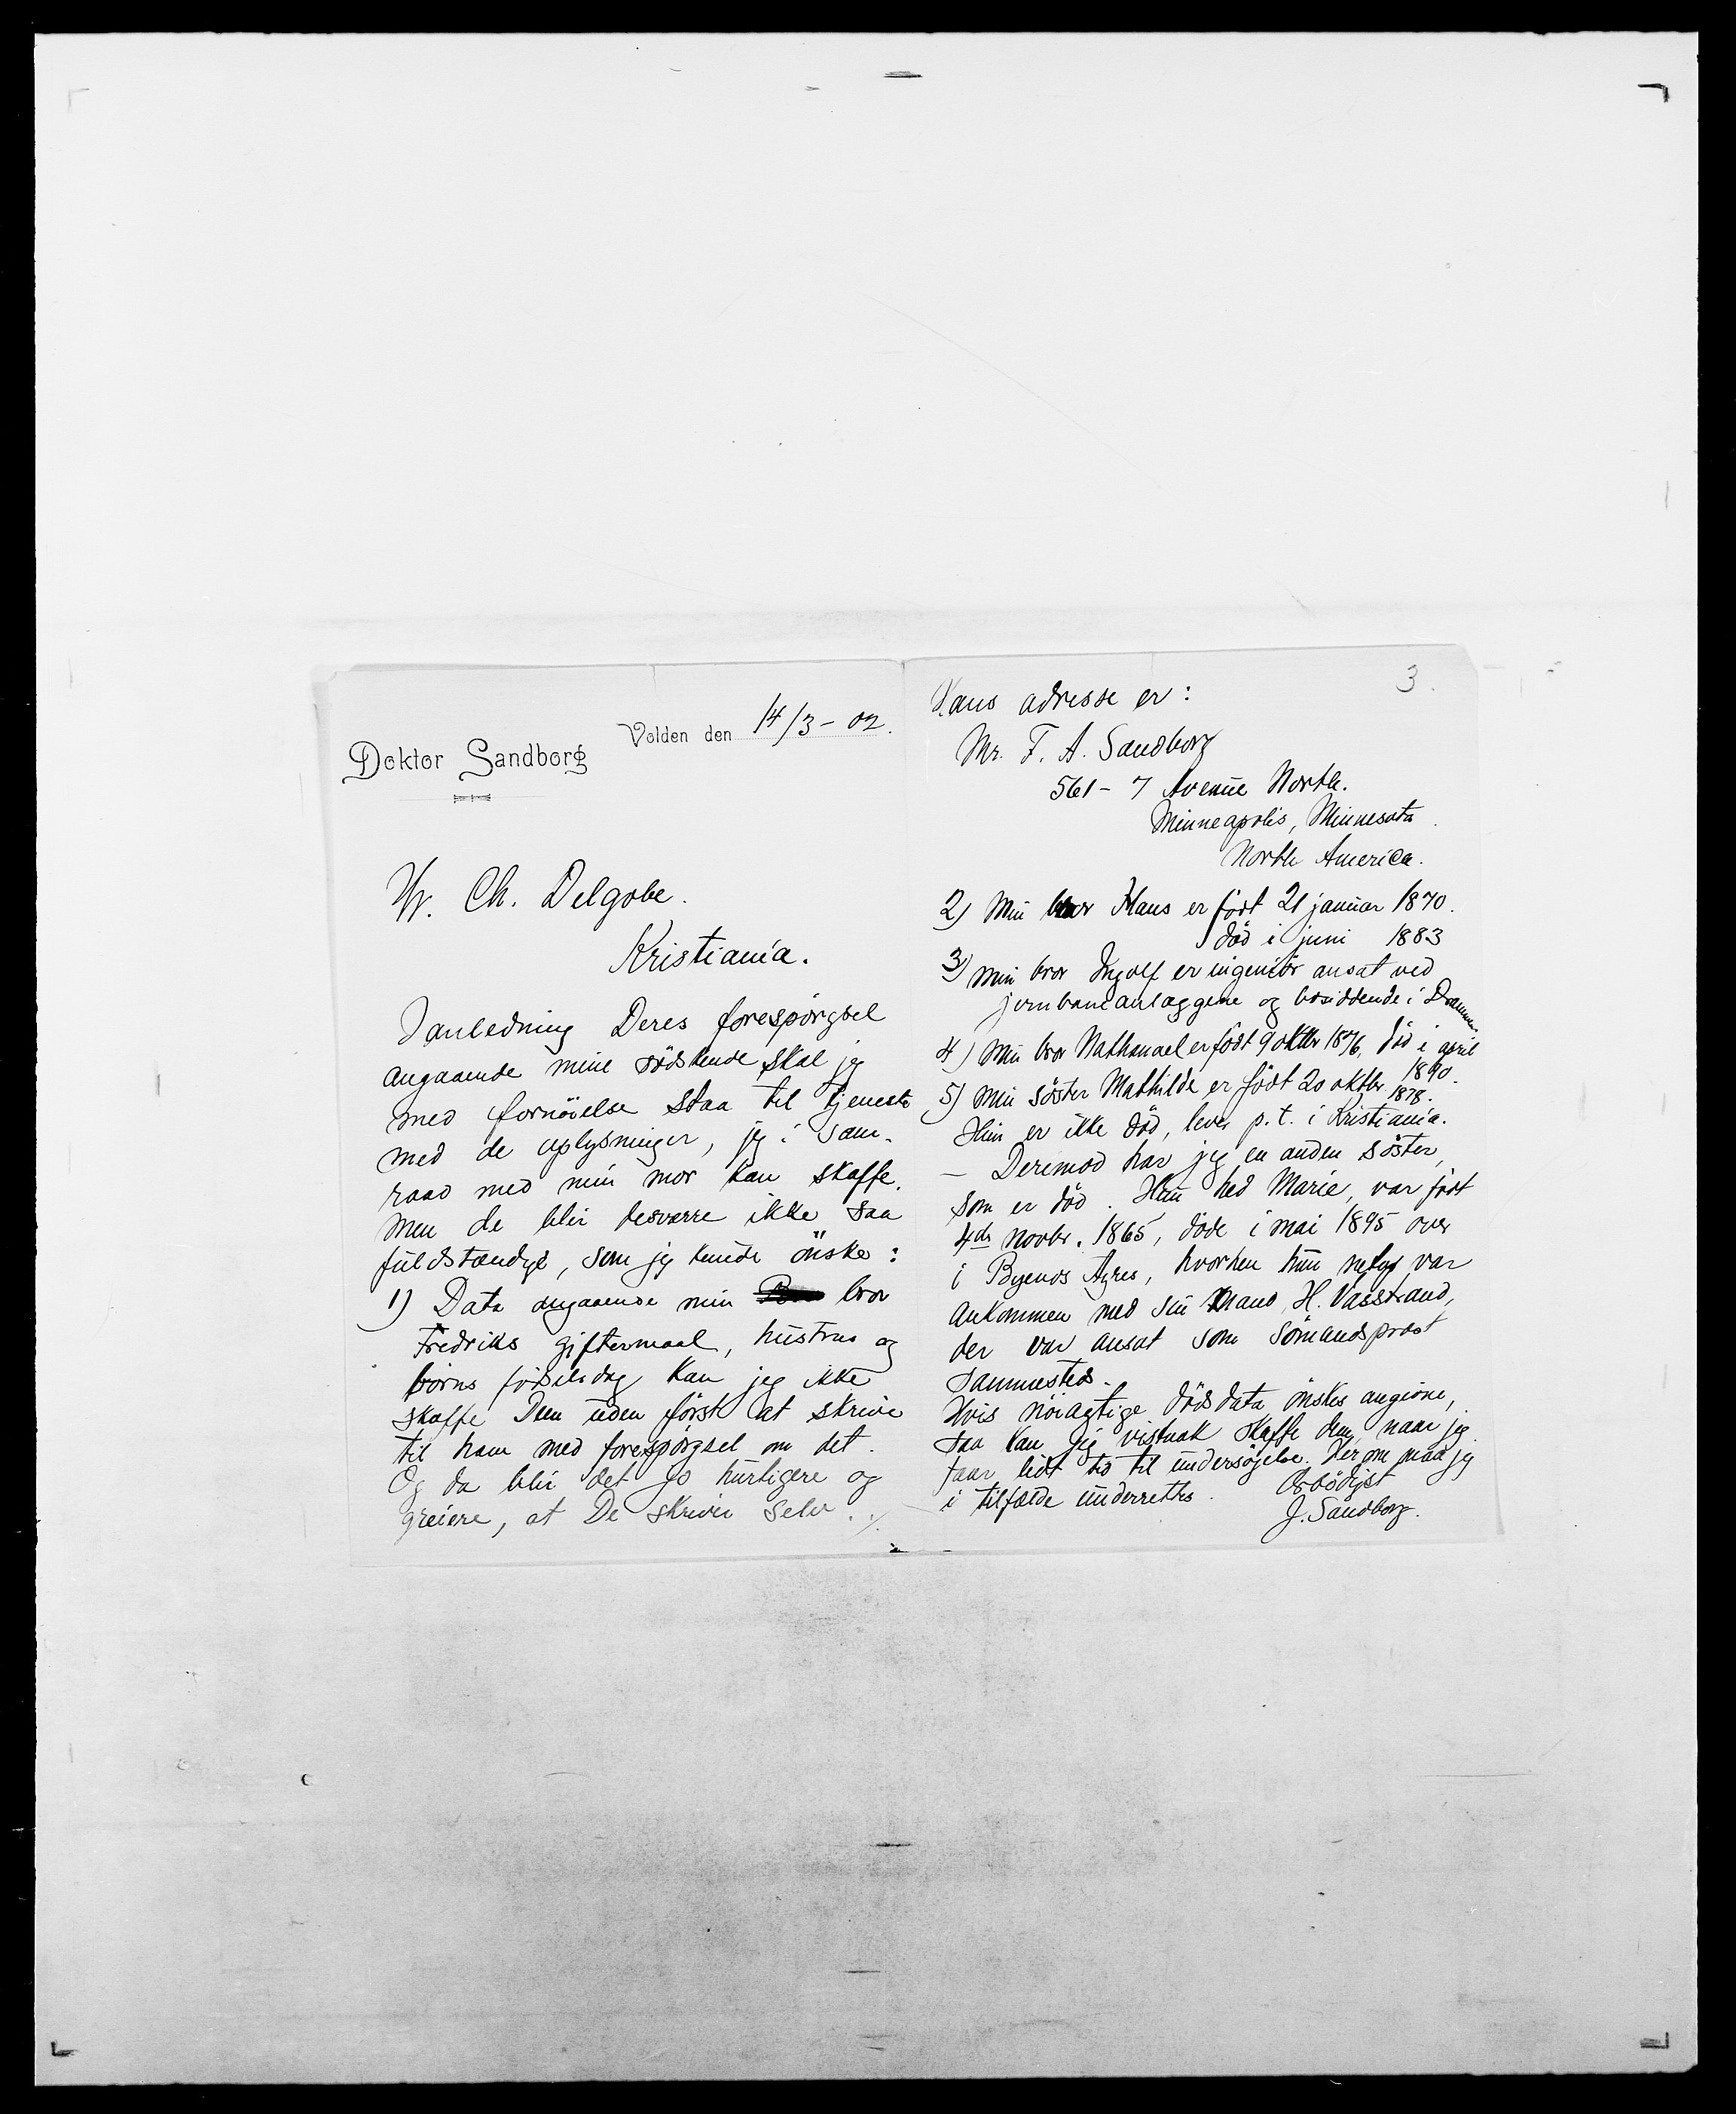 Volden den 14/3 - 02.
Doktor Sandborg
Hr. Ch. Delgobe.
Kristiania.
I anledning Deres forespørgsel
angaaende mine sødskende skal jeg
med fornøielse staa til tjeneste
med de oplysninger, jeg i sam-
raad med min mor kan skaffe.
Men de blir desværre ikke saa
fuldstændige, som jeg kunde ønske:
1) Data angaaende min bror
Fredriks giftermaal, hustrus og
børns fødselsdag kan jeg ikke
skaffe Dem uden først at skrive
til ham med forespørgsel om det.
Og da blir det jo hurtigere og
greiere, at De skriver selv. ./.
3.
Hans adresse er:
Mr. F. A. Sandborg
561 - 7 Avenue North.
Minneapolis, Minnesota.
North America.
2) Min bror Hans er født 21 januar 1870.
død i juni 1883
3) Min bror Ingolf er ingeniør ansat ved
jernbaneanlæggene og boende i Drammen
4) Min bror Nathanael er født 9 oktbr 1876, død i april
1890.
5) Min søster Mathilde er født 20 oktbr. 1878.
Hun er ikke død, lever p. t. i Kristiania.
- Derimod har jeg en anden søster,
som er død. Hun hed Marie, var født
4de novbr. 1865, døde i mai 1895 over
i Byenos Ayres, hvorhen hun nylig var
ankommen med sin mand, H. Vasstrand,
der var ansat som sømandsprest
sammesteds.
Hvis nøiagtige dødsdata ønskes angivne,
saa kan jeg vistnok skaffe dem, naar jeg
faar lidt tid til undersøgelse. Herom maa jeg
i tilfælde underrettes.
Ærbødigst
J. Sandborg.